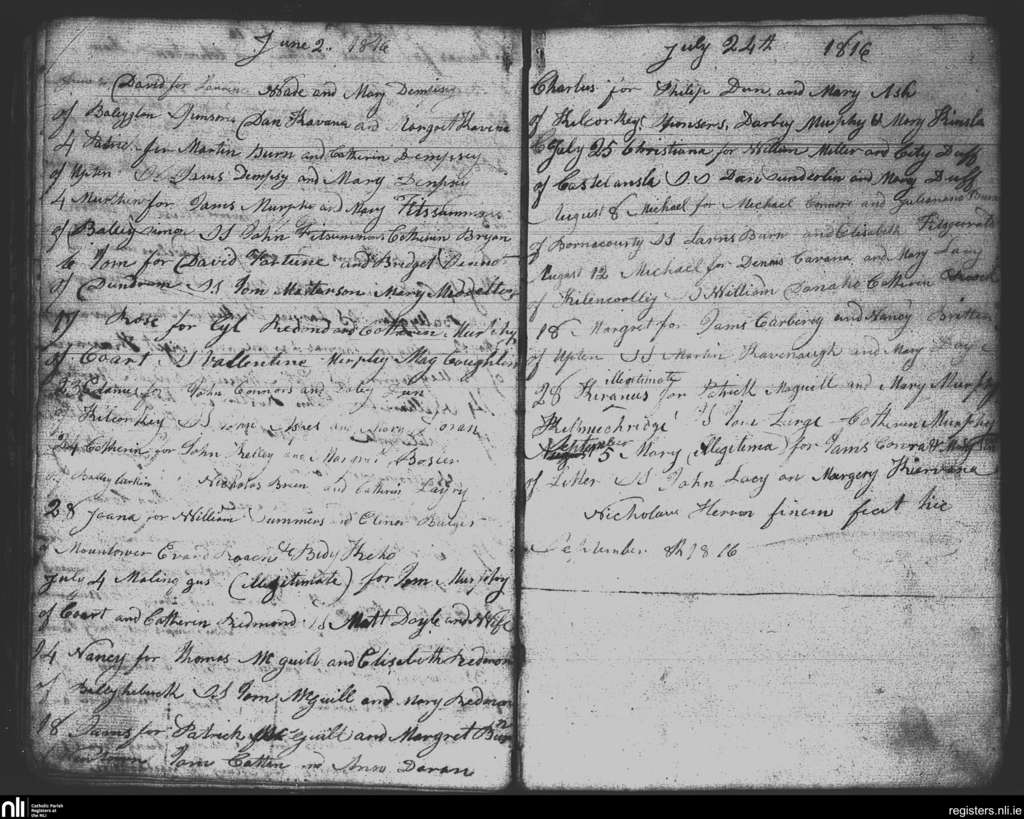 June 2. 1816
David for Laurence Wade and Mary Demsey
of Balyglon Sponsors Dan Kavana and Margret Kavena
4 Patric for Martin Burn and Catherin Dempsey
of Upton Ss Jams Dempsy and Mary Dempsy
4 Murthen for Jams Murphe and Mary Fitssummons
of Baleysimon SS John Fitsummons Catherin Bryan
6 Tom for David Fortune and Bridget
of Dundrum SS Tom Masterson Mary Meddelton
17 Rose for Egl Redmond and Catherin Murphy
of Court SS Vallentine Murphey Mag Coughlin
23 for John Connors and Dun
of Kilcorkey SS and Doran
24 Catherin for John Kelley and Margret Bosier
of Balley Larkin Nicholas Brien and Cathrin
28 Joana for William Summers and Elinor Bulger
Mountower and Bidy Keho
July 4 Molingus (Illegitimate) for Tom Murphy
of Court and Catherin Redmond SS Matt Doyle and Wife
14 Nancy for Thomas McGuill and Elisabeth Redmon
of Ballyhebuck SS Tom McGuill and Mary Redmon
18 Jams for Patrick McGuill and Margret Burn
Tom Catten and Ann Doran
July 24th 1816
Charlus for Philip Dun, and Mary Ash
of Kilcorkey, Sponsers, Darbey Murphy & Mary Kinsla
July 25 Christiana for William Miller and City Duff
of Castelansla S.S Dan Sunderlin and Mary Duff
August 8 Michael for Michael Connore and Julianana Burn
of Bornacourty SS Larns Burn and Elisabeth Fitzgerrald
August 12 Michael for Dennis Cavana and Mary Lacy
of Kilencoolly S William Canaho Catherin
18 Margret for Jams Carberey and Nancy Britten
of Upton SS Martin Kavenaugh and Mary
28 Kiranus Illegitimate for Patrick Maguill and Mary Murphy
Kilmuckridge S Tom Linge Catherin Murphy
September 5 Mary (Illegitima) for Jams Conra & Mary
of Litter SS John Lacy an Margery Kiervana
Nicholaus Herron finem fecit hic
September 8th 1816
nli
Catholic Parish
Registers at
the NLI
registers.nli.ie